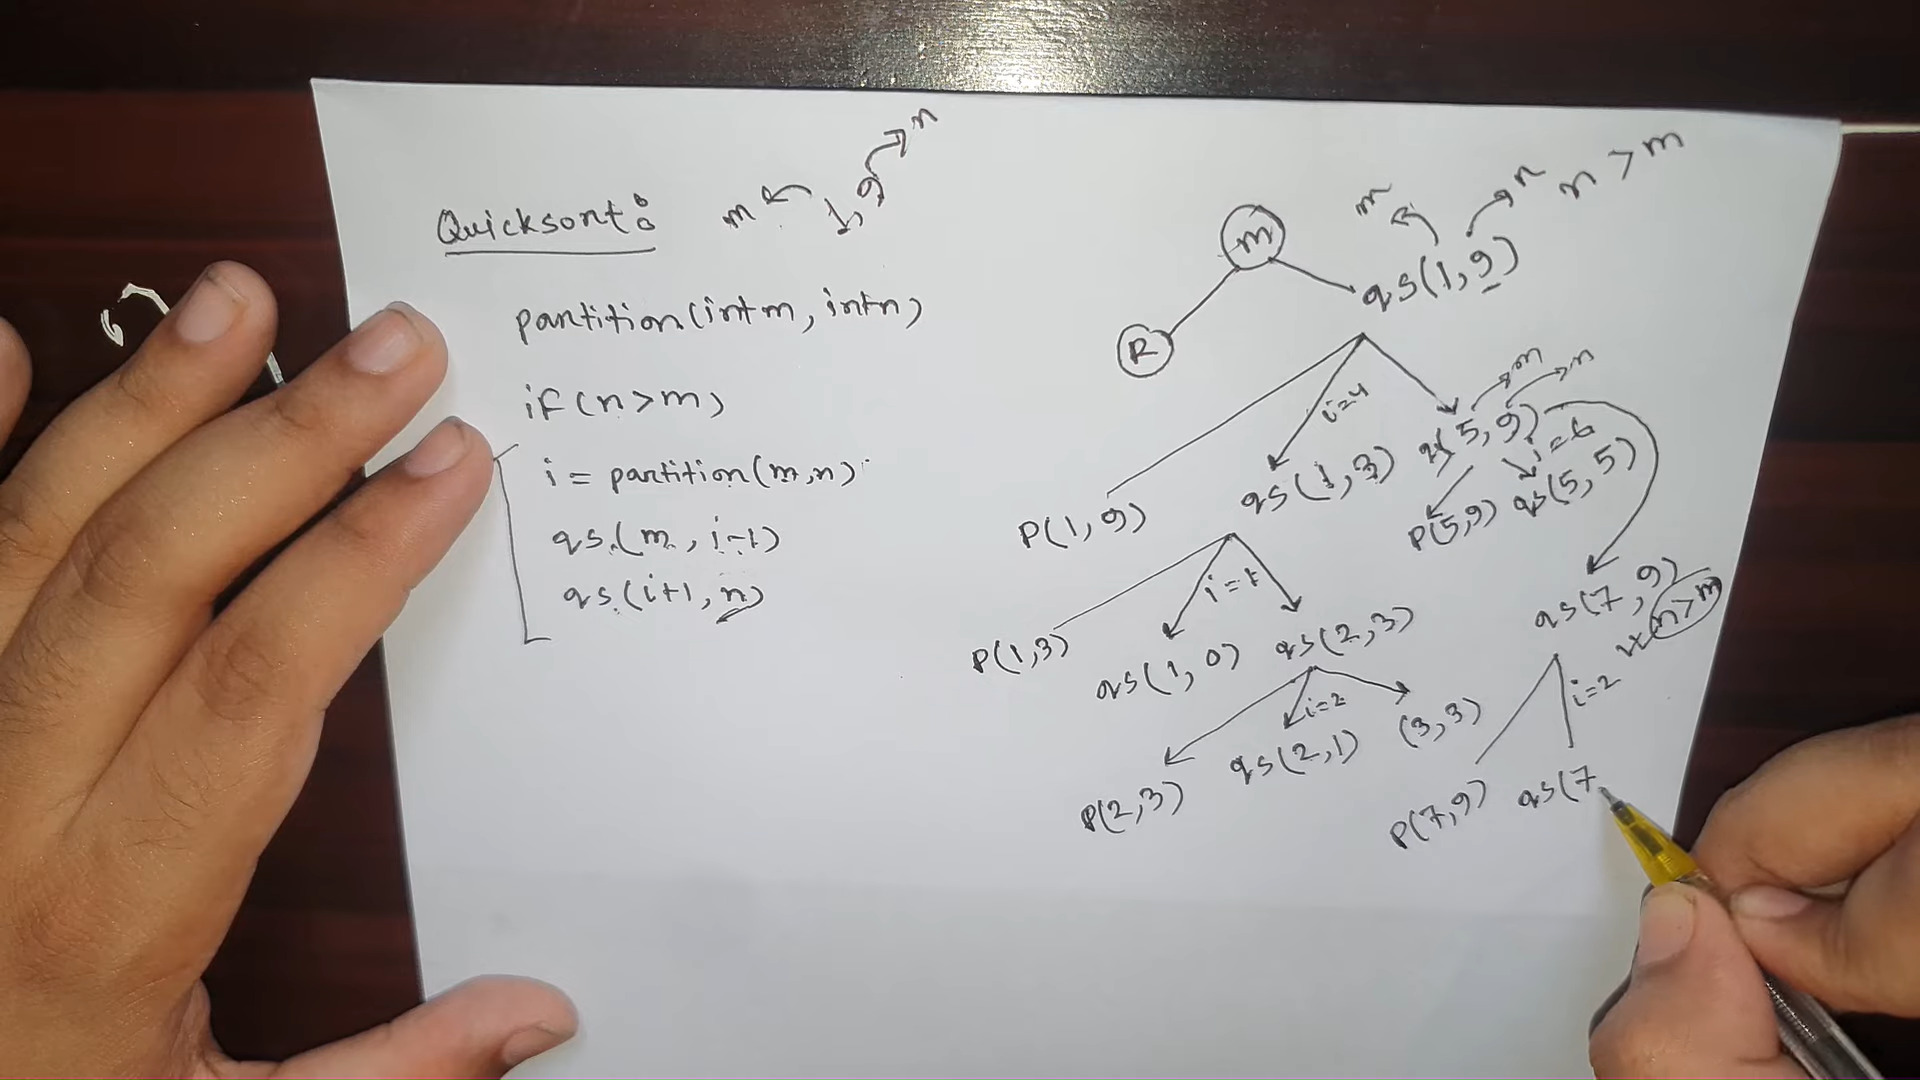 Quicksort:
m 1, 9 n
partition(int m, int n)
if(n>m)
i = partition(m,n)
qs(m, i-1)
qs(i+1, n)
m
R
m n n > m
qs(1,9)
i=4
m n
P(1,9) qs(1,3) qs(5,9)
i=6
P(5,9) qs(5,5)
i=1
P(1,3) qs(1,0) qs(2,3)
qs(7,9)
n>m
i=2
P(2,3) qs(2,1) (3,3)
i=2
P(7,9) qs(7,